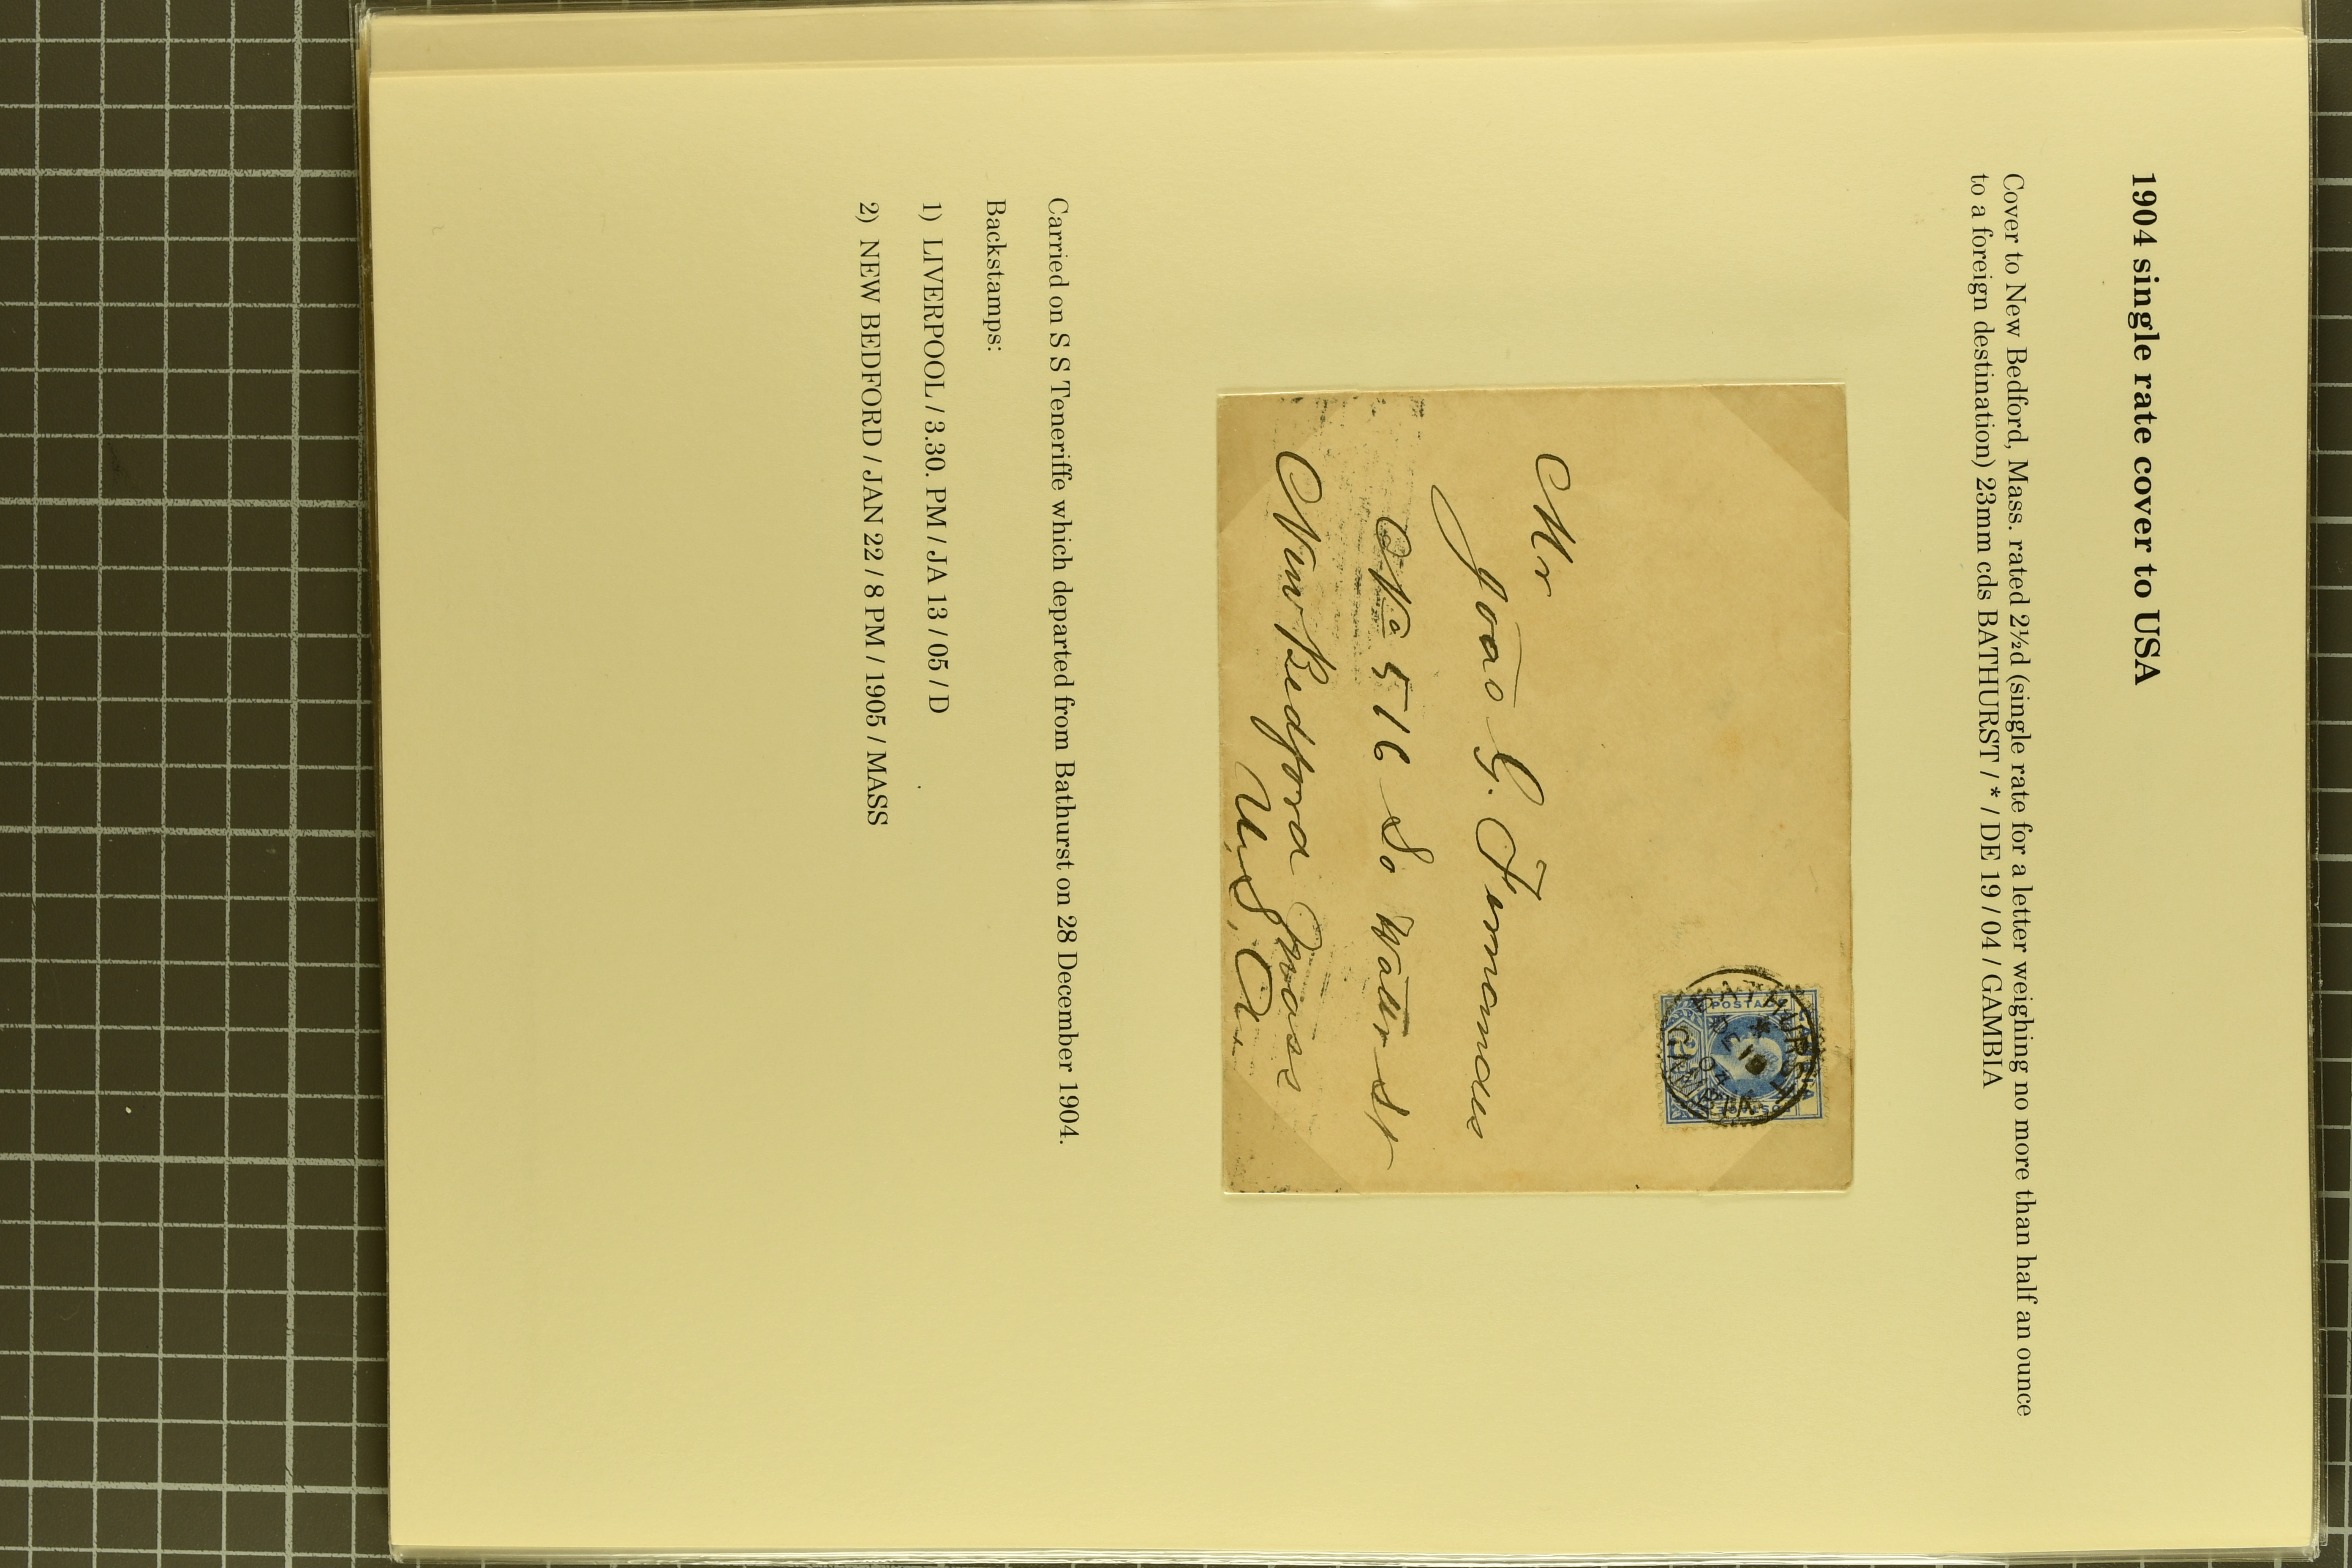 1904 single rate cover to USA
Cover to New Bedford, Mass. rated 2½d (single rate for a letter weighing no more than half an ounce
to a foreign destination) 23mm cds BATHURST / * / DE 19 / 04 / GAMBIA
GAMBIA
POSTAGE
BATHURST
*
DE 19
04
GAMBIA
Mr
João G. Fernandes
No 516 So Water St
New Bedford Mass
U.S.A.
Carried on S S Teneriffe which departed from Bathurst on 28 December 1904.
Backstamps:
1) LIVERPOOL / 3.30. PM / JA 13 / 05 / D
2) NEW BEDFORD / JAN 22 / 8 PM / 1905 / MASS